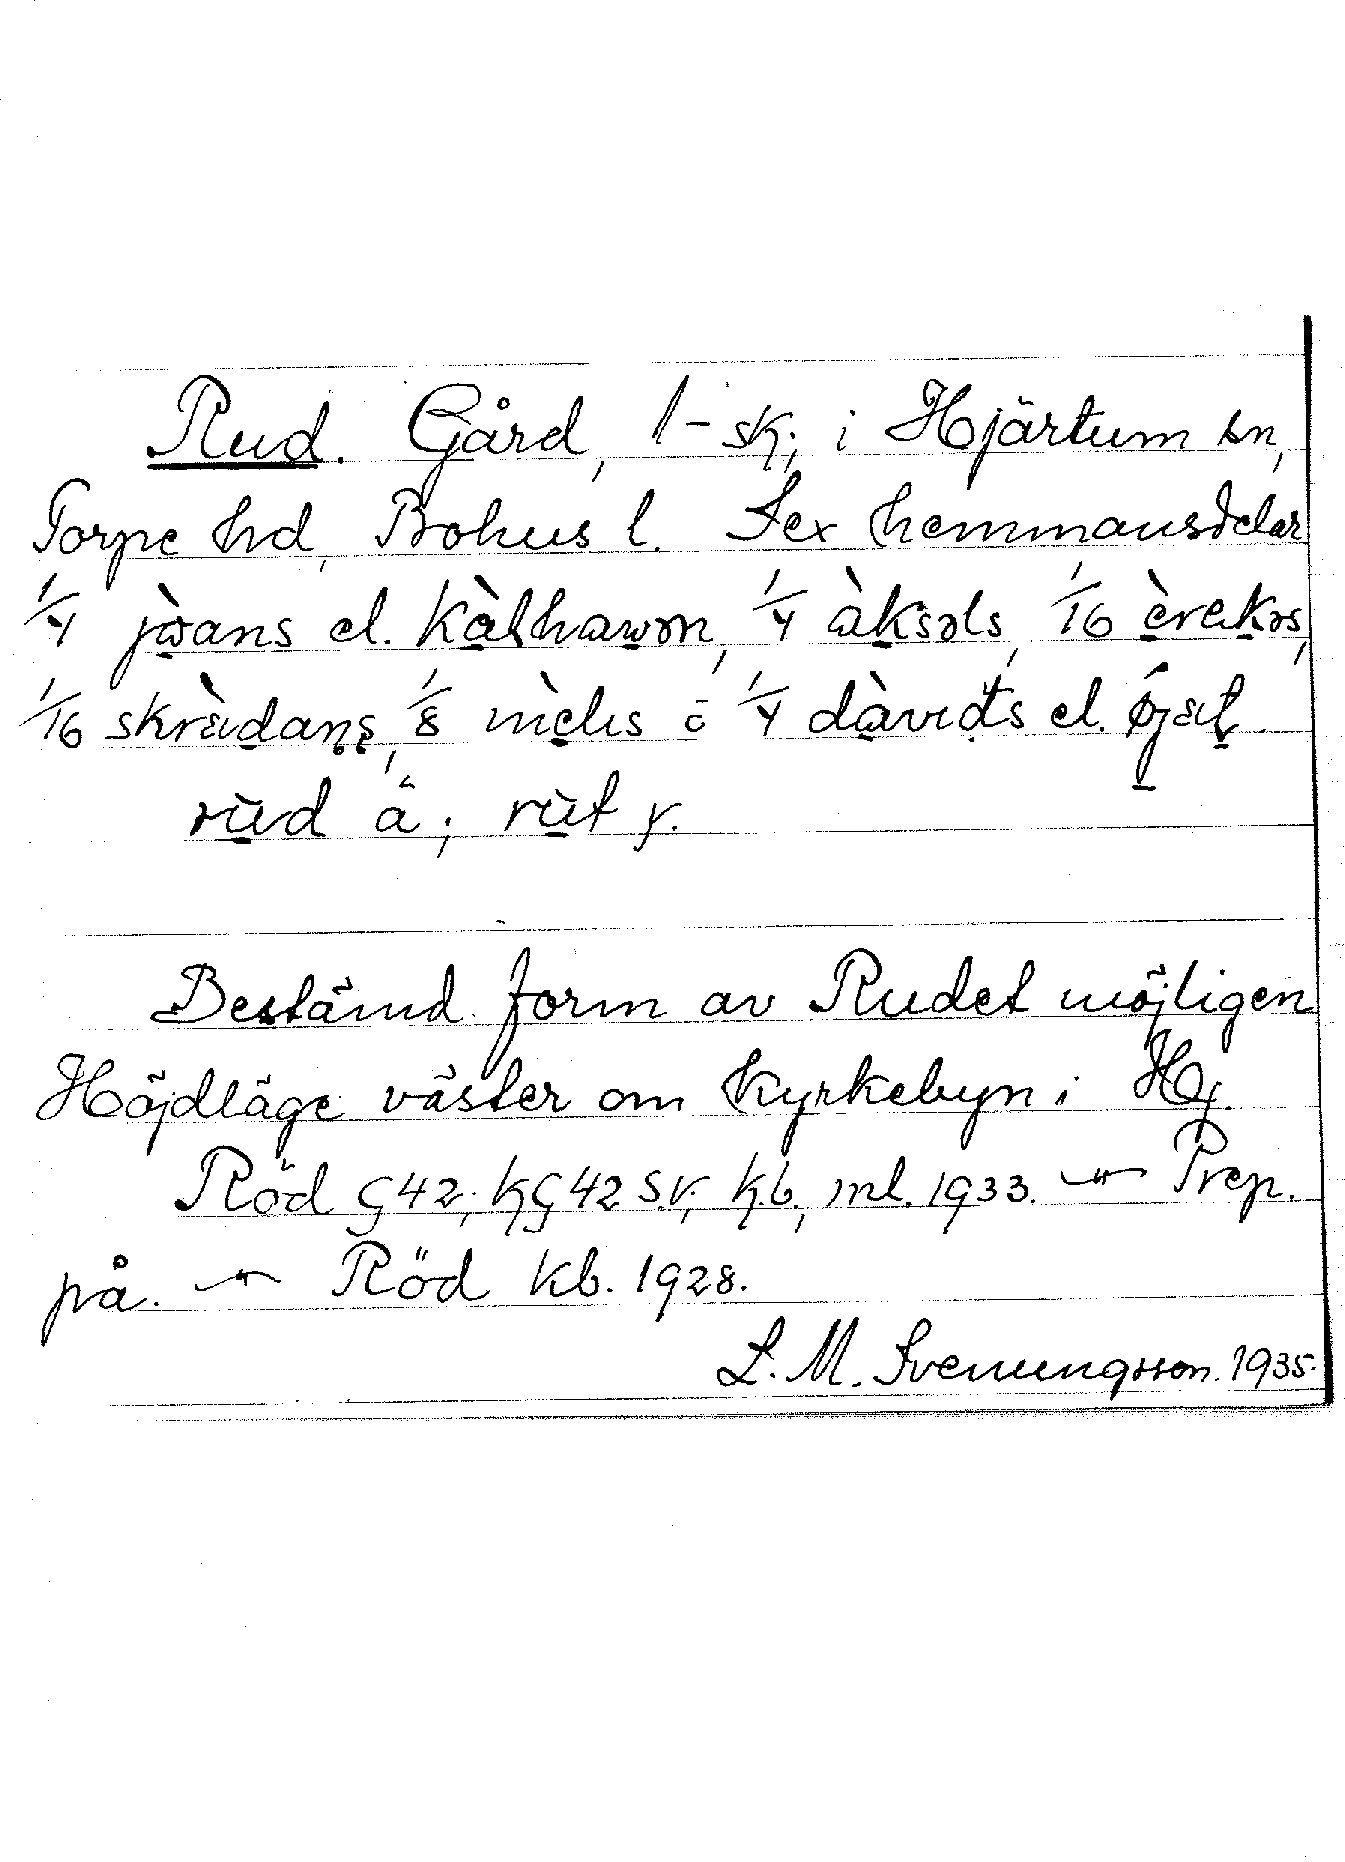 Rud. Gård, 1-sk; i Hjärtum sn,
Torpe hd, Bohus l. Sex hemmansdelar
1/4 el. 1/4 àksəls, 1/16
1/16 1/8 o 1/4 dàvids el.
rùd ä; rùt y.
Bestämd form av Rudet möjligen
Höjdläge väster om Kyrkebyn i Hj.
Röd G42; KG42 S.V; K.b., ml. 1933. — " — Prep.
på. — " — Röd Kb. 1928.
L. M. Svenungsson. 1935.